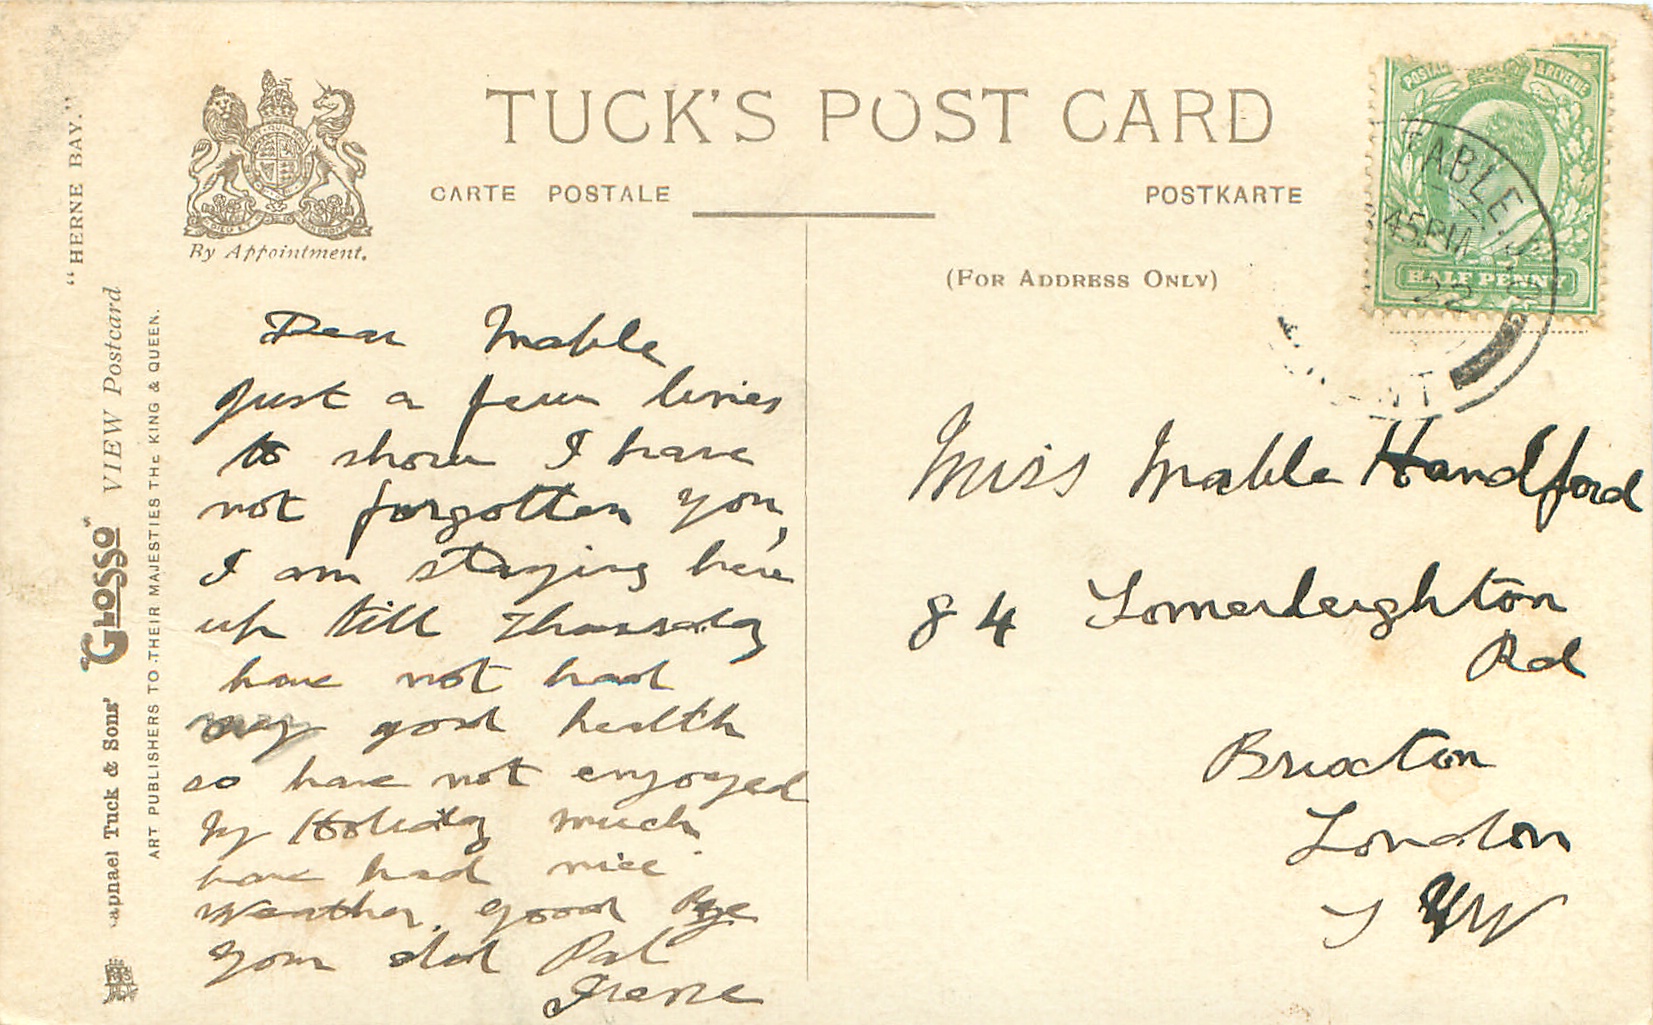 TUCK'S POST CARD
CARTE POSTALE
POSTKARTE
By Appointment.
(FOR ADDRESS ONLY)
"HERNE BAY."
Raphael Tuck & Sons' "GLOSSO" VIEW Postcard
ART PUBLISHERS TO THEIR MAJESTIES THE KING & QUEEN.
POSTAGE & REVENUE
HALF PENNY
TABLE
45 PM
22
Dear Mable
Just a few lines
to show I have
not forgotten you,
I am staying here
up till Thursday
have not had
very good health
so have not enjoyed
my Holiday much
have had nice
Weather, good Bye
your old Pal
Irene
Miss Mable Handford
84 Somerleighton
Rd
Brixton
London
S W